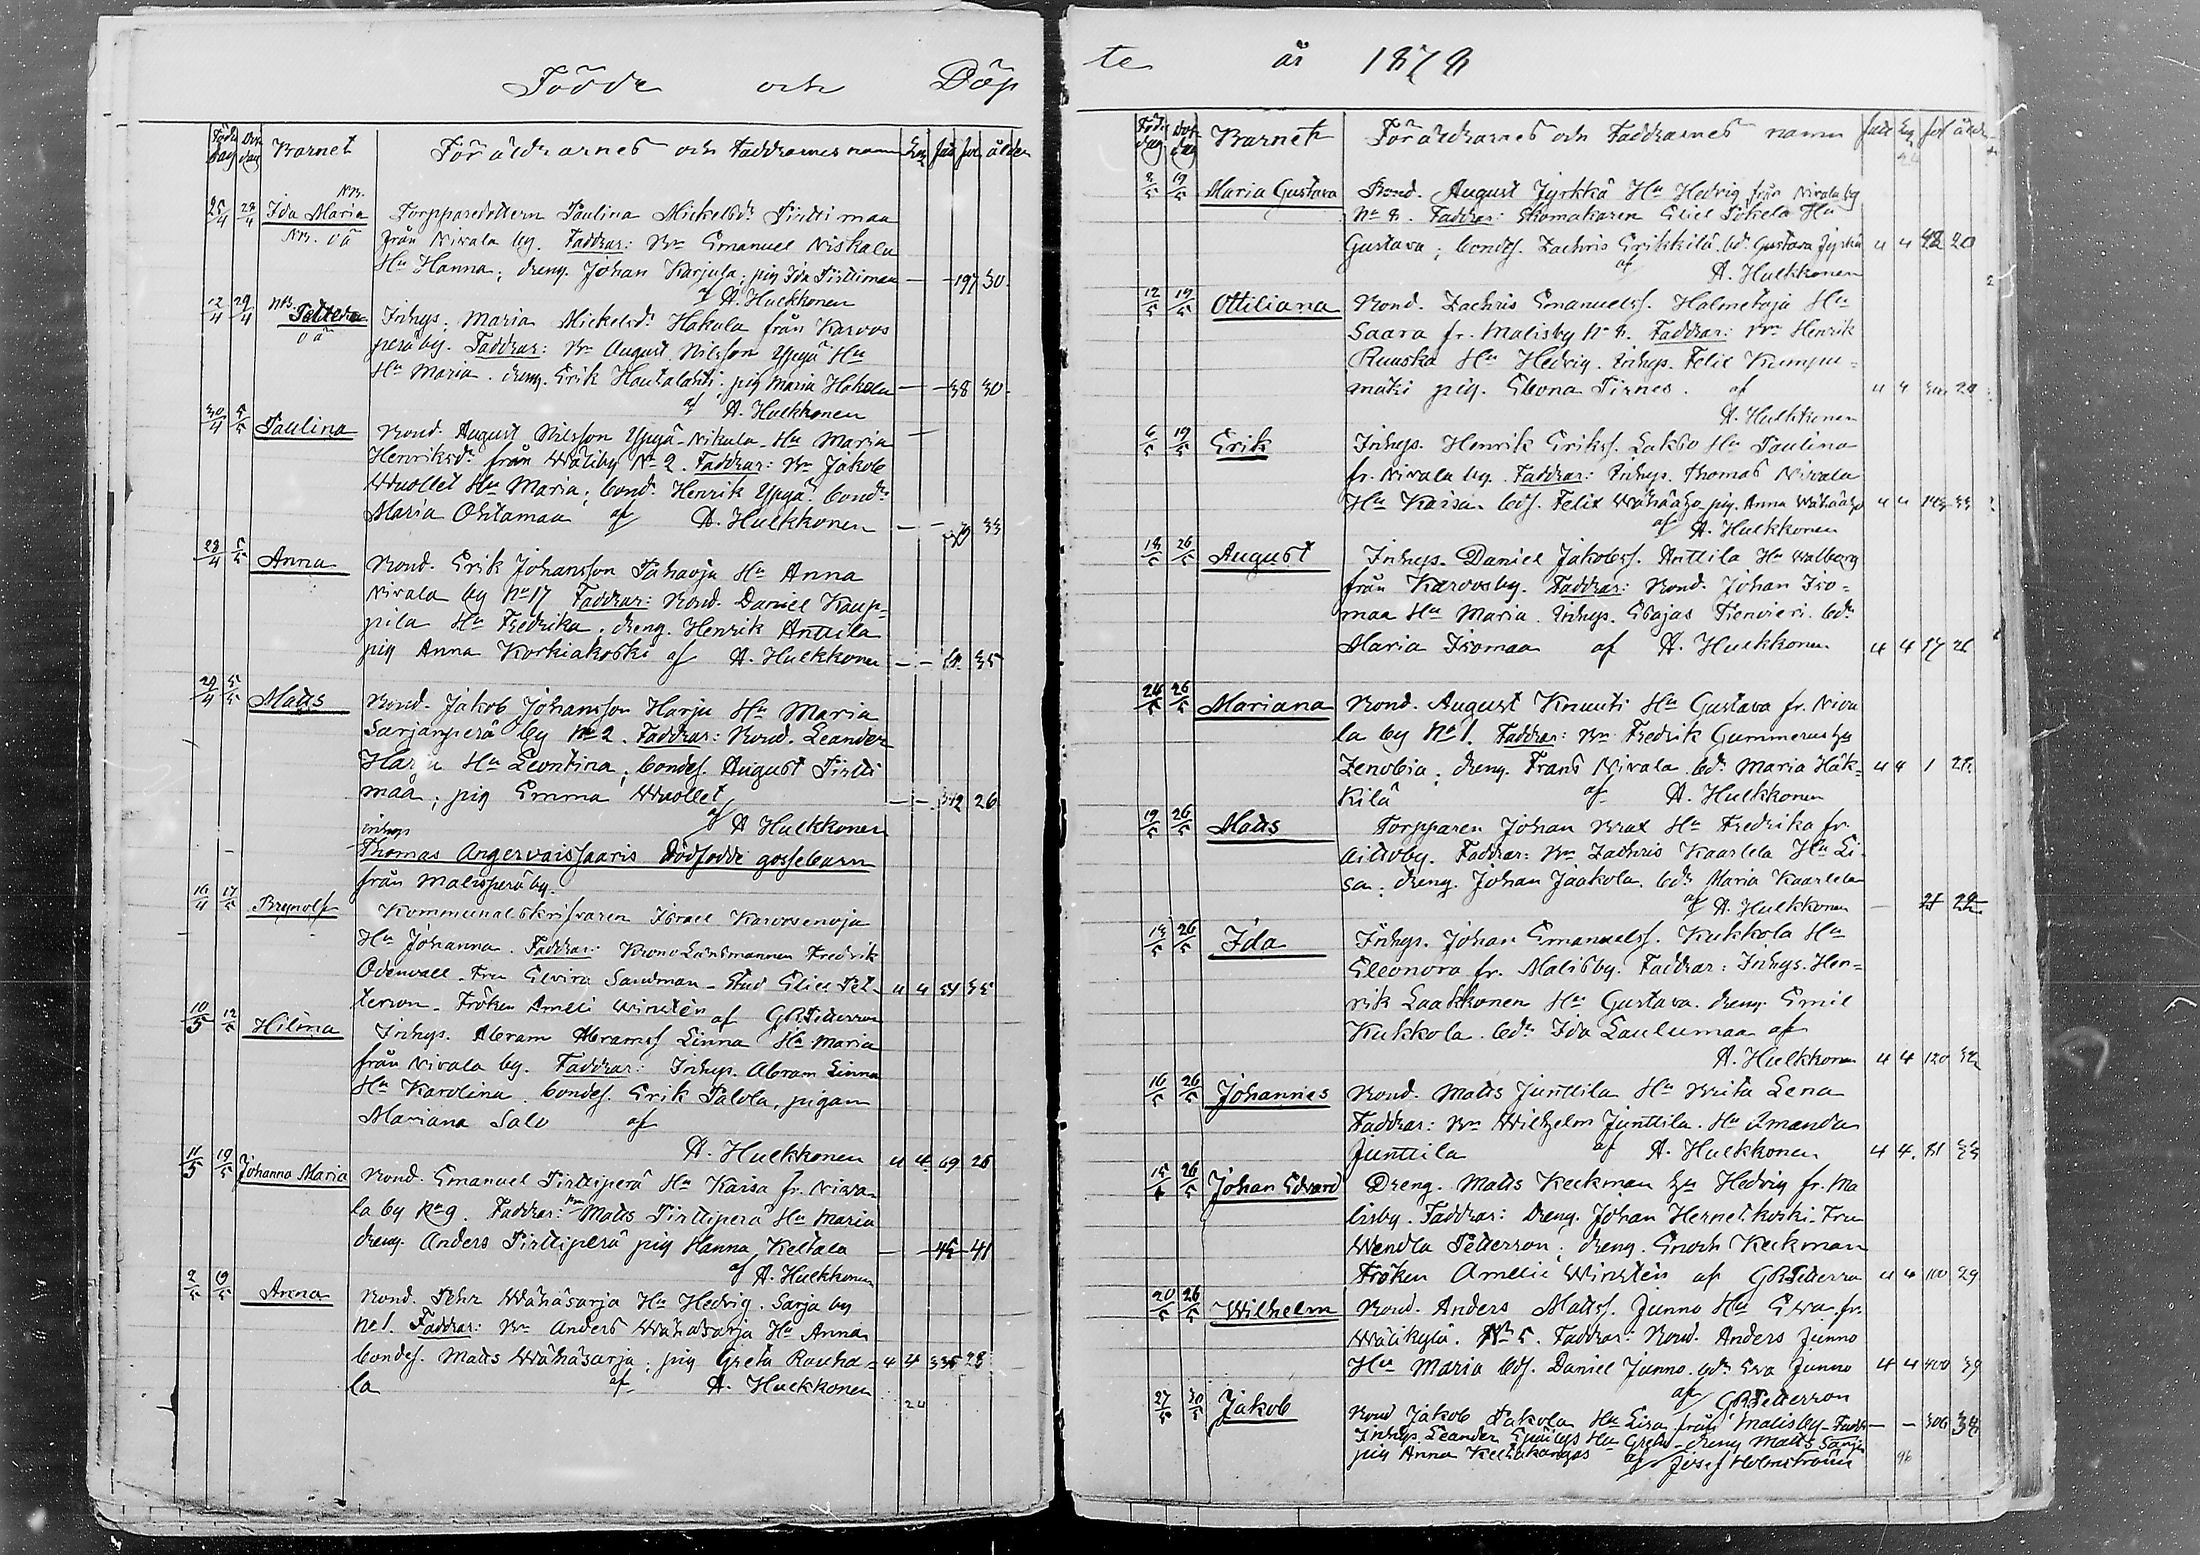 Födde och Döp
Födelse dag Dop dag Barnet Föräldrarnes och Faddrarnes namn fol ålder
25/4 28/4 NB. Ida Maria Torpparedottern Paulina Mickelsdr Pirttimaa
NB. oä från Nivala by. Faddrar: Bn Emanuel Niskala
Hu Hanna; dreng. Johan Karjula; pig Ida Pirttimaa — — 197 30
af A. Hulkkonen
12/4 29/4 NB. Inhys. Maria Mickelsdr Hakala från Karvos
oä perä by. Faddrar: Bn August Nilsson Yppyä Hu
Hu Maria. dreng. Erik Hautalahti; pig Maria Hakala — — 38 30
af A. Hulkkonen
30/4 5/5 Paulina Bond. August Nilsson Yppyä-Nikula Hu Maria
Henriksdr från Wäliby No 2. Faddrar: Bn Jakob
Wuollet Hu Maria; bond. Henrik Yppyä; bondr
Maria Ohtamaa af A. Hulkkonen — — 33
28/4 5/5 Anna Bond. Erik Johansson Pahaoja Hu Anna
Nivala by No 17 Faddrar: Bond. Daniel Kaup-
pila Hu Fredrika; dreng. Henrik Anttila
pig Anna Korkiakoski af A. Hulkkonen — — 35
29/4 5/5 Matts Bond. Jakob Johansson Harju Hu Maria
Sarjanperä by No 2. Faddrar: Bond. Leander
Harju Hu Leontina; bondes. August Pirtti
maa; pig Emma Wuollet — — 342 26
af A Hulkkonen
inhys
Thomas Angervaissaaris Dödfödde gossebarn
från Malisperä by.
16/4 17/5 Brynolf Kommunalskrifvaren Israel Karvosenoja
Hu Johanna. Faddrar: Kronolänsmannen Fredrik
Odenvall - Fru Elvira Sandman - Stud Eliel Pet- 4 4 35
terson - Fröken Ameli Winstén af GRPetterson
10/5 12/5 Hilma Inhys. Abram Abramss Linna Hu Maria
från Nivala by. Faddrar: Inhys. Abram Linna
Hu Karolina. bondes. Erik Palola, pigan
Mariana Salo af
A. Hulkkonen 4 4 69 26
11/5 19/5 Johanna Maria Bond. Emanuel Pirttiperä Hu Kaisa fr. Niva-
la by No 9. Faddrar: Bn Matts Pirttiperä Hu Maria
dreng. Anders Pirttiperä pig Hanna Keltala — — 45 41
af A. Hulkkonen
2/5 19/5 Anna Bond. Pehr Wähäsarja Hu Hedvig. Sarja by
No 1. Faddrar: Bn Anders Wähäsarja Hu Anna
bondes. Matts Wähäsarja; pig Greta Rauha- 4 4 335 28
la af A. Hulkkonen
24
te år 1878
Födelse dag Dop dag Barnet Föräldrarnes och Faddrarnes namn fol ålder
8/5 19/5 Maria Gustava Bond. August Jyrkkä Hu Hedvig från Nivala by
No 8. Faddrar: Skomakaren Eliel Pokela Hu
Gustava; bondes. Zachris Erikkilä, bdr Gustava Jyrkkä 4 4 42 20
af A. Hulkkonen
12/5 19/5 Ottiliana Bond. Zachris Emanuelss. Holmetoja Hu
Saara fr. Malisby No 8. Faddrar: Bn Henrik
Ruuska Hu Hedvig. Inhys. Felix Kumpu-
mäki pig. Ebona Pirnes. af 4 4 20
A. Hulkkonen
6/5 19/5 Erik Inhys. Henrik Erikss. Lakso Hu Paulina
fr. Nivala by. Faddrar: Inhys. Thomas Nivala
Hu Kaisa. bds. Felix Wähäaho pig. Anna Wähäaho 4 4 33
af A. Hulkkonen
18/5 26/5 August Inhys. Daniel Jakobss. Anttila Hu Walborg
från Karvosby. Faddrar: Bond. Johan Iso-
maa Hu Maria. Inhys. Esajas Pienvieri. bdr
Maria Isomaa af A. Hulkkonen 4 4 17 26
24/5 26/5 Mariana Bond. August Knuuti Hu Gustava fr. Niva
la by No 1. Faddrar: Bn Fredrik Gummerus Hu
Zenobia; dreng. Frans Nivala. bdr Maria Häk- 4 4 1 28
kilä af A. Hulkkonen
19/5 26/5 Matts Torpparen Johan Brax Hu Fredrika fr.
Aittoby. Faddrar: Bn Zachris Kaarlela Hu Li-
sa; dreng. Johan Jaakola. bdr Maria Kaarlela
af A. Hulkkonen — 21 22
13/5 26/5 Ida Inhys. Johan Emanuelss. Kukkola Hu
Eleonora fr. Malisby. Faddrar: Inhys. Hen-
rik Laakkonen Hu Gustava. dreng. Emil
Kukkola. bdr Ida Laulumaa af
A. Hulkkonen 4 4 120 32
16/5 26/5 Johannes Bond. Matts Junttila Hu Brita Lena
Faddrar: Bn Wilhelm Junttila. Hu Amanda
Junttila af A. Hulkkonen 4 4 81 33
15/5 26/5 Johan Edvard Dreng. Matts Keckman Hu Hedvig fr. Ma
lisby. Faddrar: Dreng. Johan Hernetkoski. Fru
Wendla Petterson; dreng. Enoch Keckman
Fröken Amelie Winstén af GRPetterson 4 4 100 29
20/5 26/5 Wilhelm Bond. Anders Matss. Junno Hu Eva fr.
Wälikylä. No 5. Faddrar: Bond. Anders Junno
Hu Maria bds. Daniel Junno. bdr Eva Junno 4 4 400 39
af GRPetterson
27/5 30/5 Jakob Bond Jakob Pakola Hu Lisa från Malisby - Faddr — — 306 34
Inhys. Leander Hu Greta - dreng Matts Sarja
pig Anna Keltakangas af Josef Holmström 96